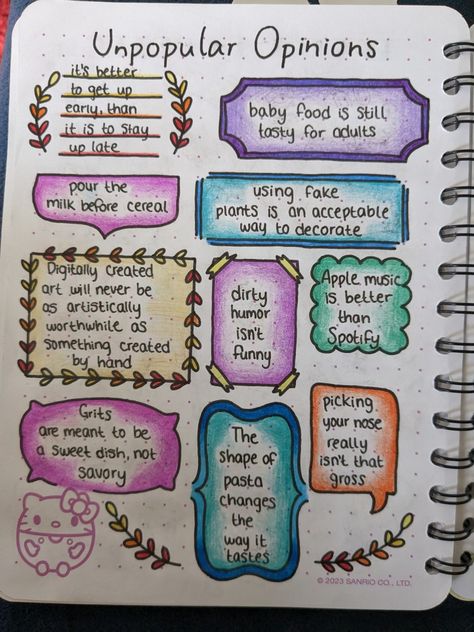 Unpopular Opinions
it's better
to get up
early, than
it is to stay
up late
baby food is still
tasty for adults
pour the
milk before cereal
using fake
plants is an acceptable
way to decorate
Digitally created
art will never be
as artistically
worthwhile as
something created
by hand
dirty
humor
isn't
funny
Apple music
is better
than
Spotify
Grits
are meant to be
a sweet dish, not
savory
The
shape of
pasta
changes
the
way it
tastes
picking
your nose
really
isn't that
gross
© 2023 SANRIO CO., LTD.